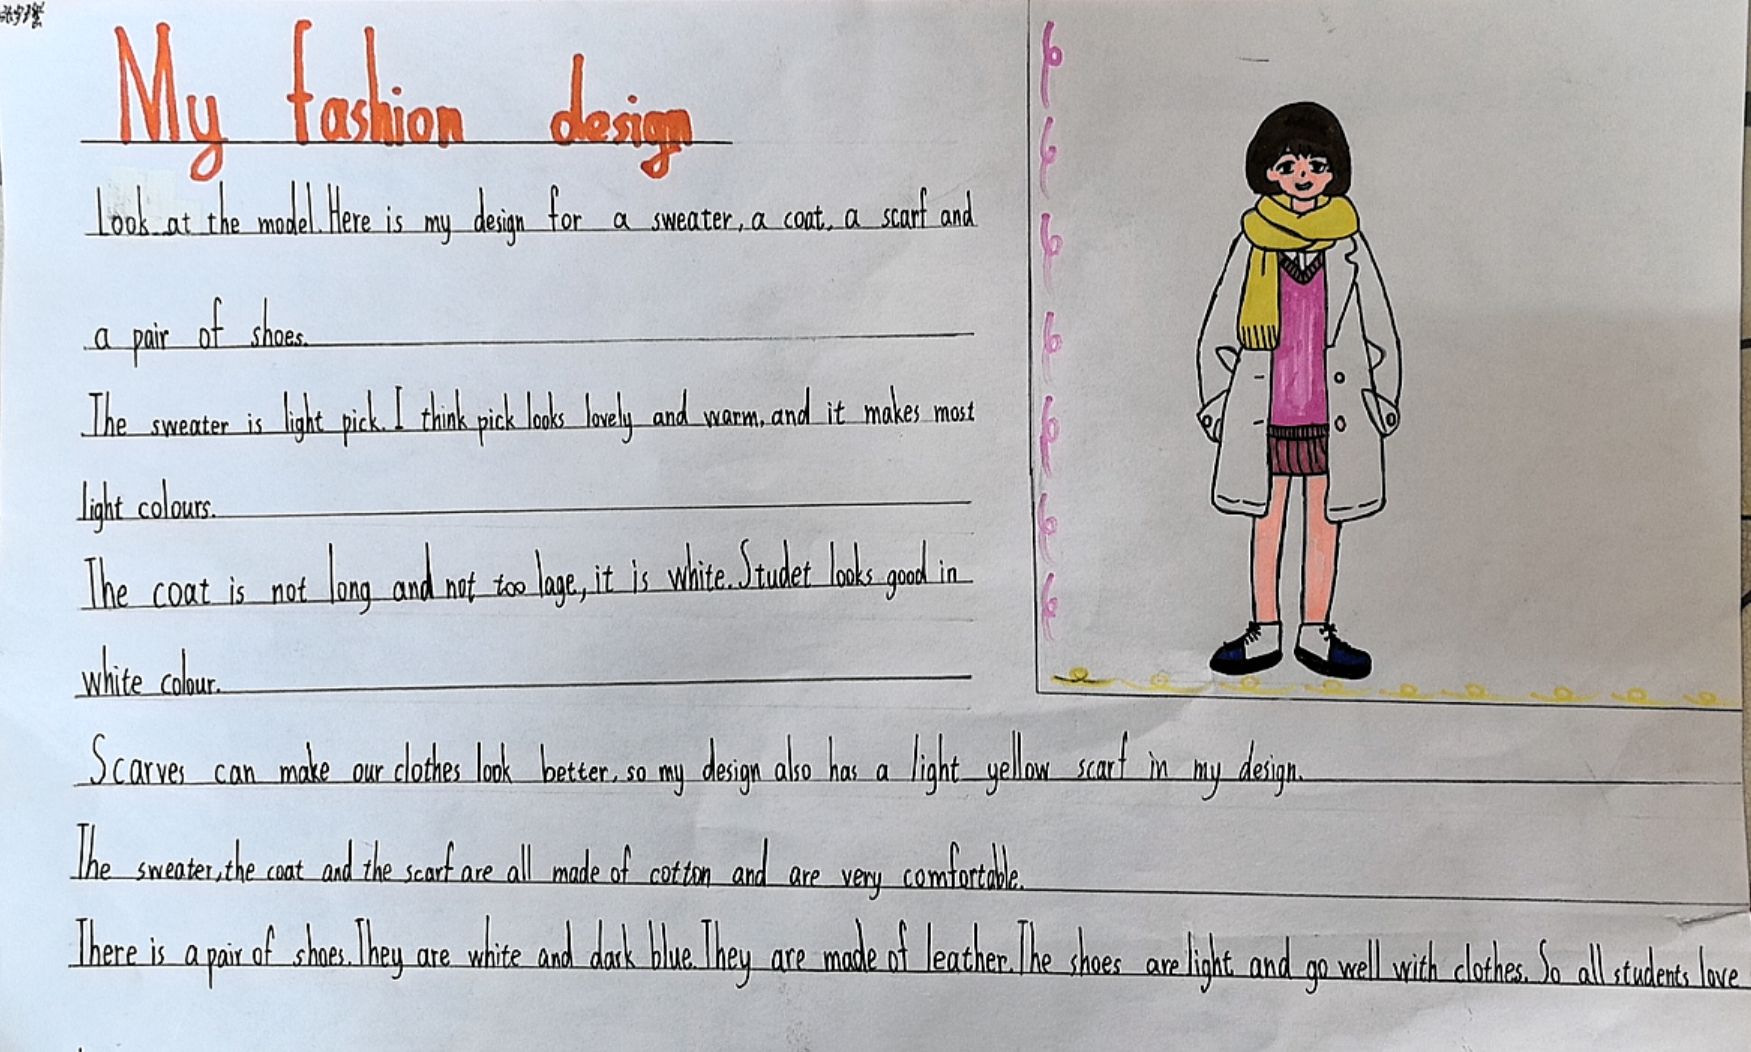 My fashion design
Look at the model. Here is my design for a sweater, a coat, a scarf and
a pair of shoes.
The sweater is light pick. I think pick looks lovely and warm, and it makes most
light colours.
The coat is not long and not too lage, it is white. Studet looks good in
white colour.
Scarves can make our clothes look better, so my design also has a light yellow scarf in my design.
The sweater, the coat and the scarf are all made of cotton and are very comfortable.
There is a pair of shoes. They are white and dark blue. They are made of leather. The shoes are light and go well with clothes. So all students love